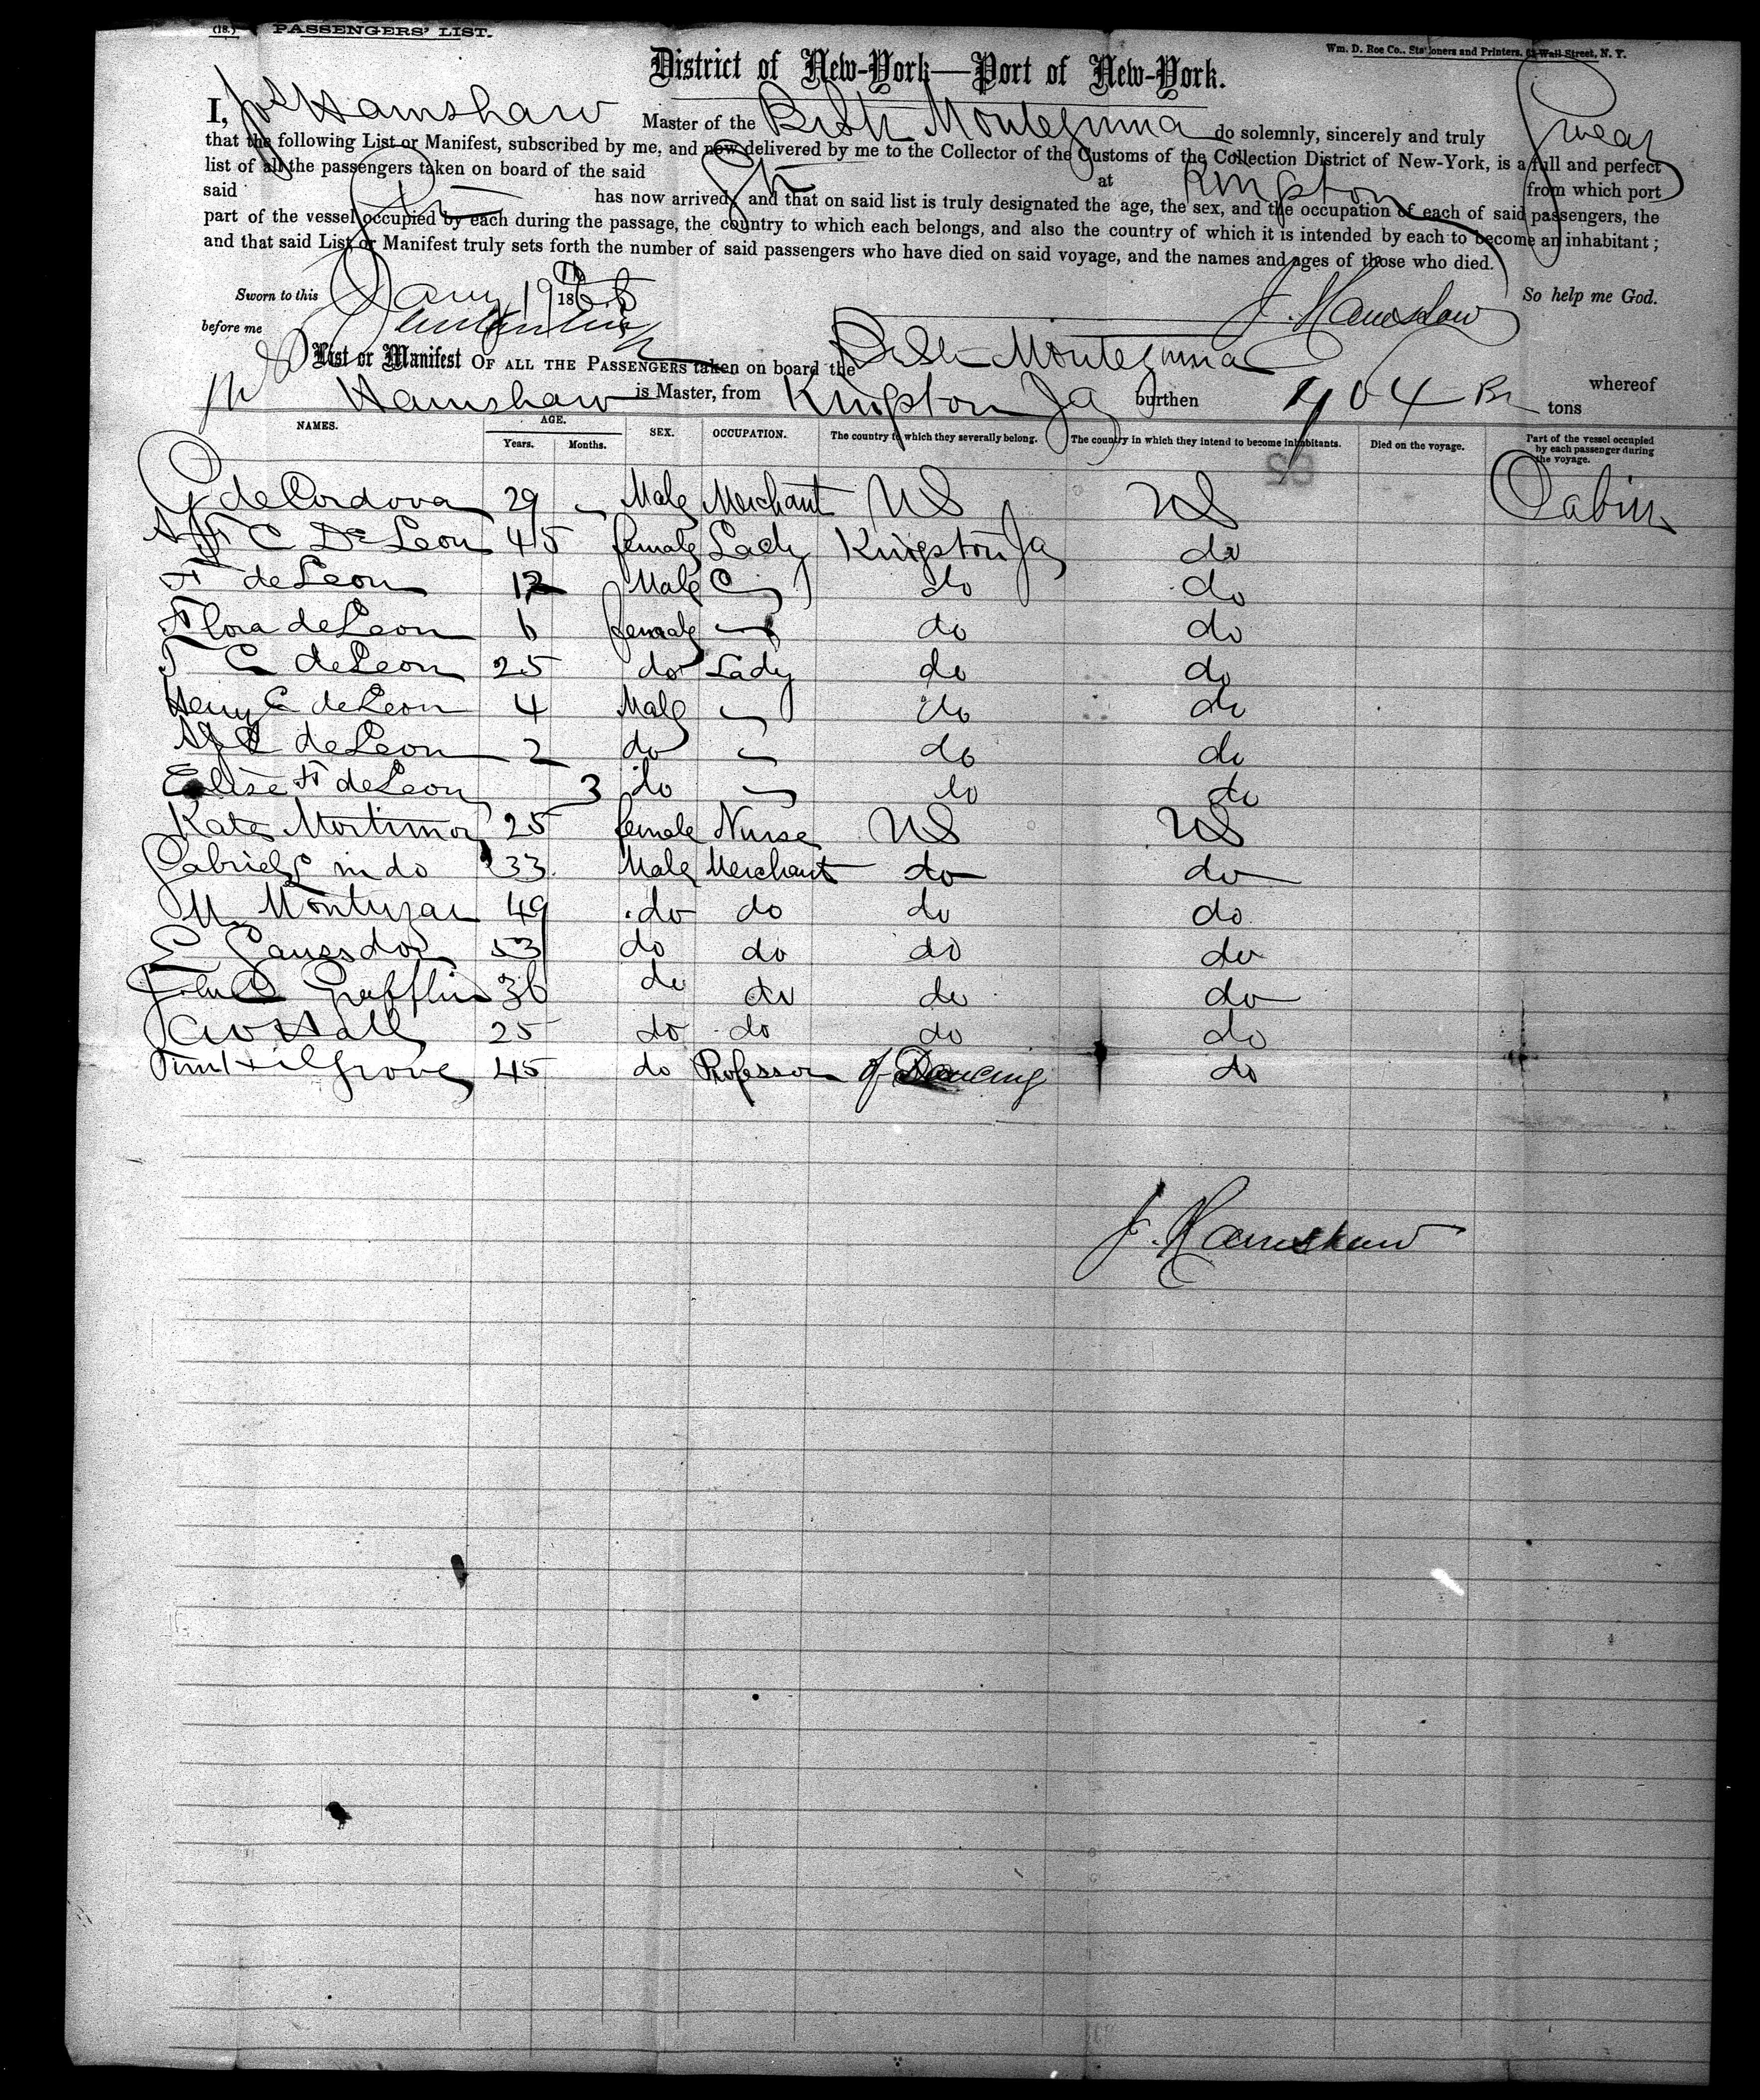 (18.) PASSENGERS' LIST.
Wm. D. Roe Co., Stationers and Printers, Wall Street, N. Y.
District of New-York—Port of New-York.
I, Hamshaw Master of the Montezuma do solemnly, sincerely and truly swear
that the following List or Manifest, subscribed by me, and now delivered by me to the Collector of the Customs of the Collection District of New-York, is a full and perfect
list of all the passengers taken on board of the said Str at Kingston from which port
said Str has now arrived; and that on said list is truly designated the age, the sex, and the occupation of each of said passengers, the
part of the vessel occupied by each during the passage, the country to which each belongs, and also the country of which it is intended by each to become an inhabitant;
and that said List or Manifest truly sets forth the number of said passengers who have died on said voyage, and the names and ages of those who died.
Sworn to this Jany 19th 186 So help me God.
before me J. Hamshaw
List or Manifest OF ALL THE PASSENGERS taken on board the Montezuma whereof
Hamshaw is Master, from Kingston Ja burthen tons
NAMES. AGE. Years. Months. SEX. OCCUPATION. The country to which they severally belong. The country in which they intend to become inhabitants. Died on the voyage. Part of the vessel occupied by each passenger during the voyage.
deCordova 29 Male Merchant US US Cabin
C De Leon 45 female Lady Kingston Ja do
F deLeon 12 Male do do
Flora deLeon 6 female do do
C deLeon 25 do Lady do do
Henry C deLeon 4 Male do do
deLeon 2 do do do
F deLeon 3 do do do
Kate Mortimor 25 female Nurse US US
33 Male Merchant do do
M 49 do do do do
E 53 do do do do
36 do do do do
Hall 25 do do do do
Hilgrove 45 do Professor of Dancing do
J. Hamshaw